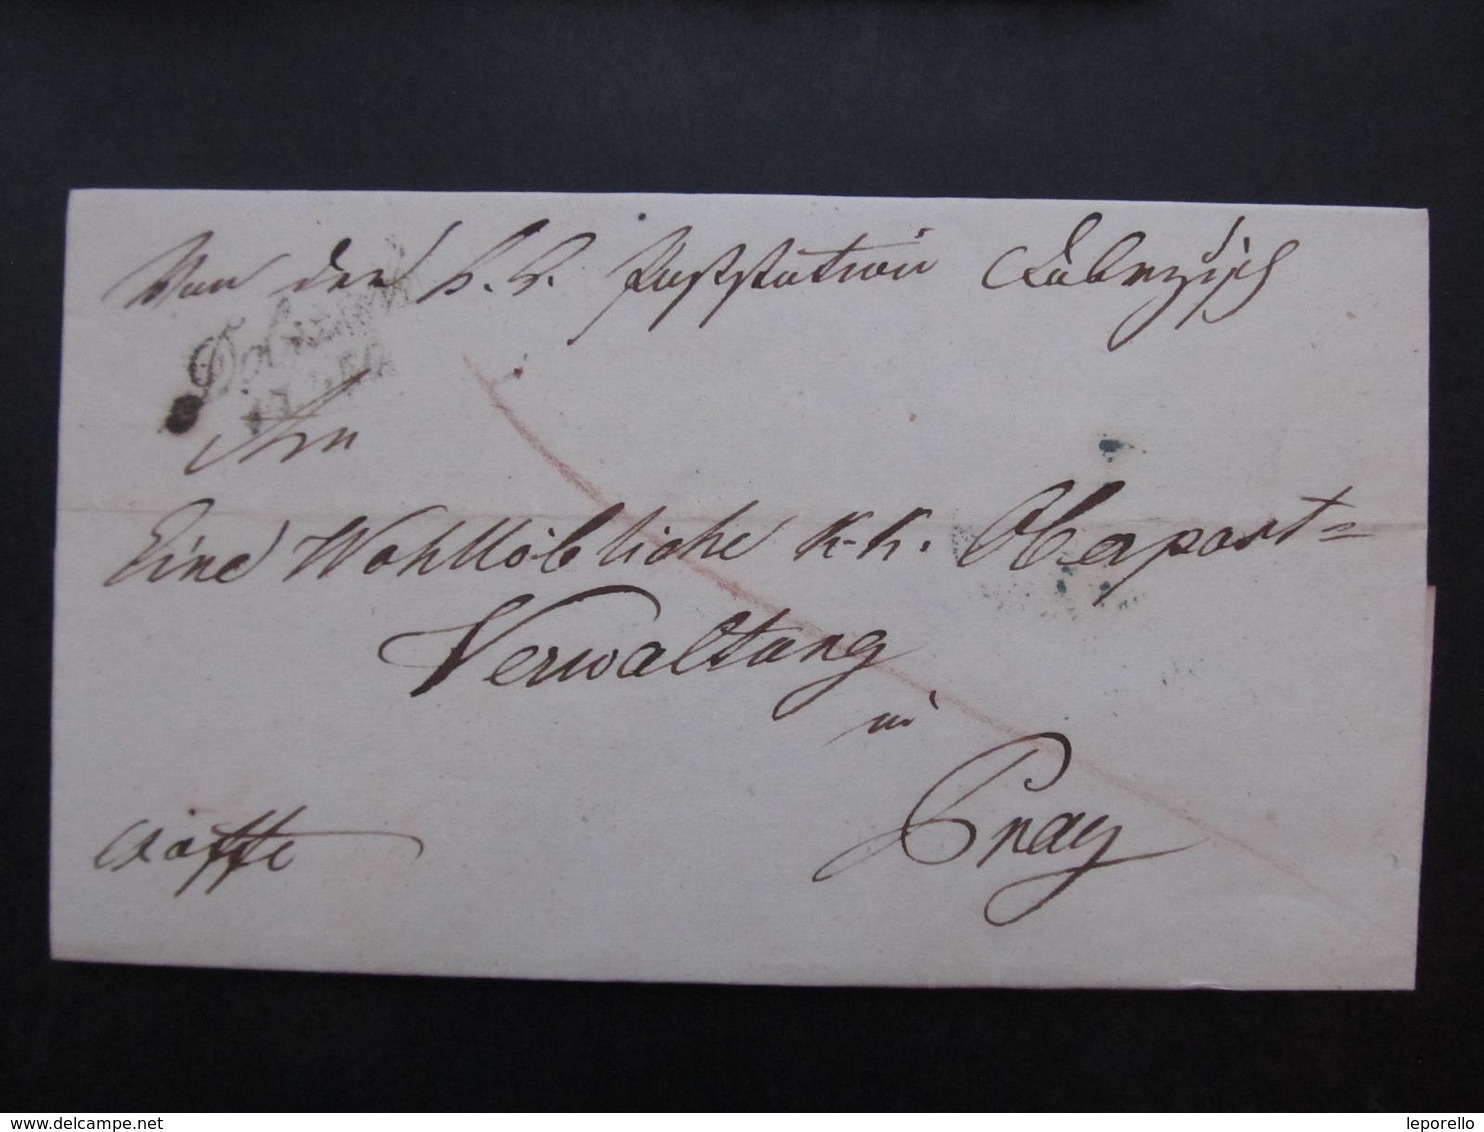 Von der k. k. Poststation Dobrzisch
An
Eine Wohllöbliche K. K. Oberpost=
Verwaltung
in
Prag
delcampe.net
leporello